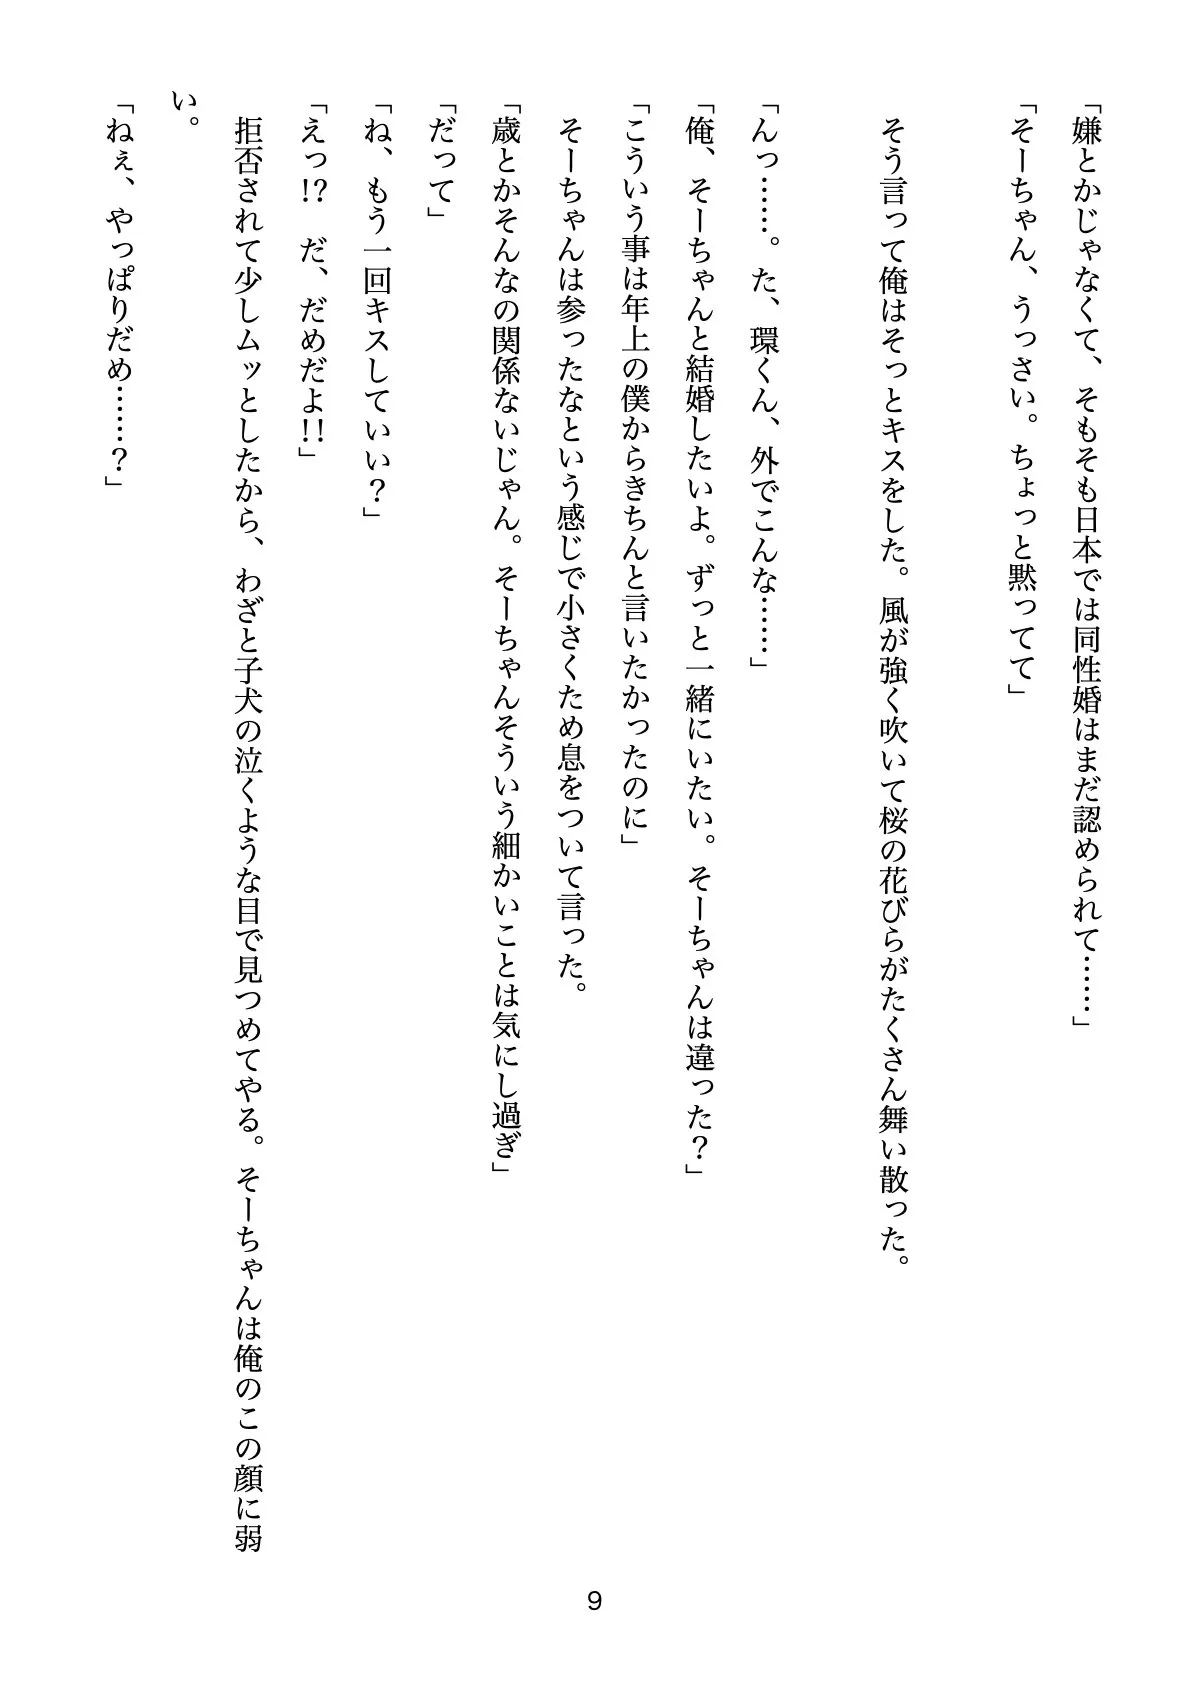 「嫌とかじゃなくて、そもそも日本では同性婚はまだ認められて……」
「そーちゃん、うっさい。ちょっと黙ってて」
　そう言って俺はそっとキスをした。風が強く吹いて桜の花びらがたくさん舞い散った。
「んっ……。た、環くん、外でこんな……」
「俺、そーちゃんと結婚したいよ。ずっと一緒にいたい。そーちゃんは違った？」
「こういう事は年上の僕からきちんと言いたかったのに」
　そーちゃんは参ったなという感じで小さくため息をついて言った。
「歳とかそんなの関係ないじゃん。そーちゃんそういう細かいことは気にし過ぎ」
「だって」
「ね、もう一回キスしていい？」
「えっ!?　だ、だめだよ!!」
　拒否されて少しムッとしたから、わざと子犬の泣くような目で見つめてやる。そーちゃんは俺のこの顔に弱
い。
「ねぇ、やっぱりだめ……？」
9